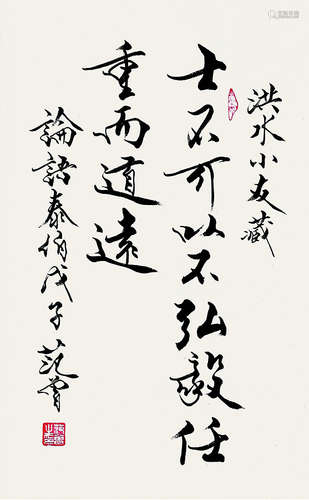 洪水小友藏
士不可以不弘毅任
重而道遠
論語泰伯戊子范曾